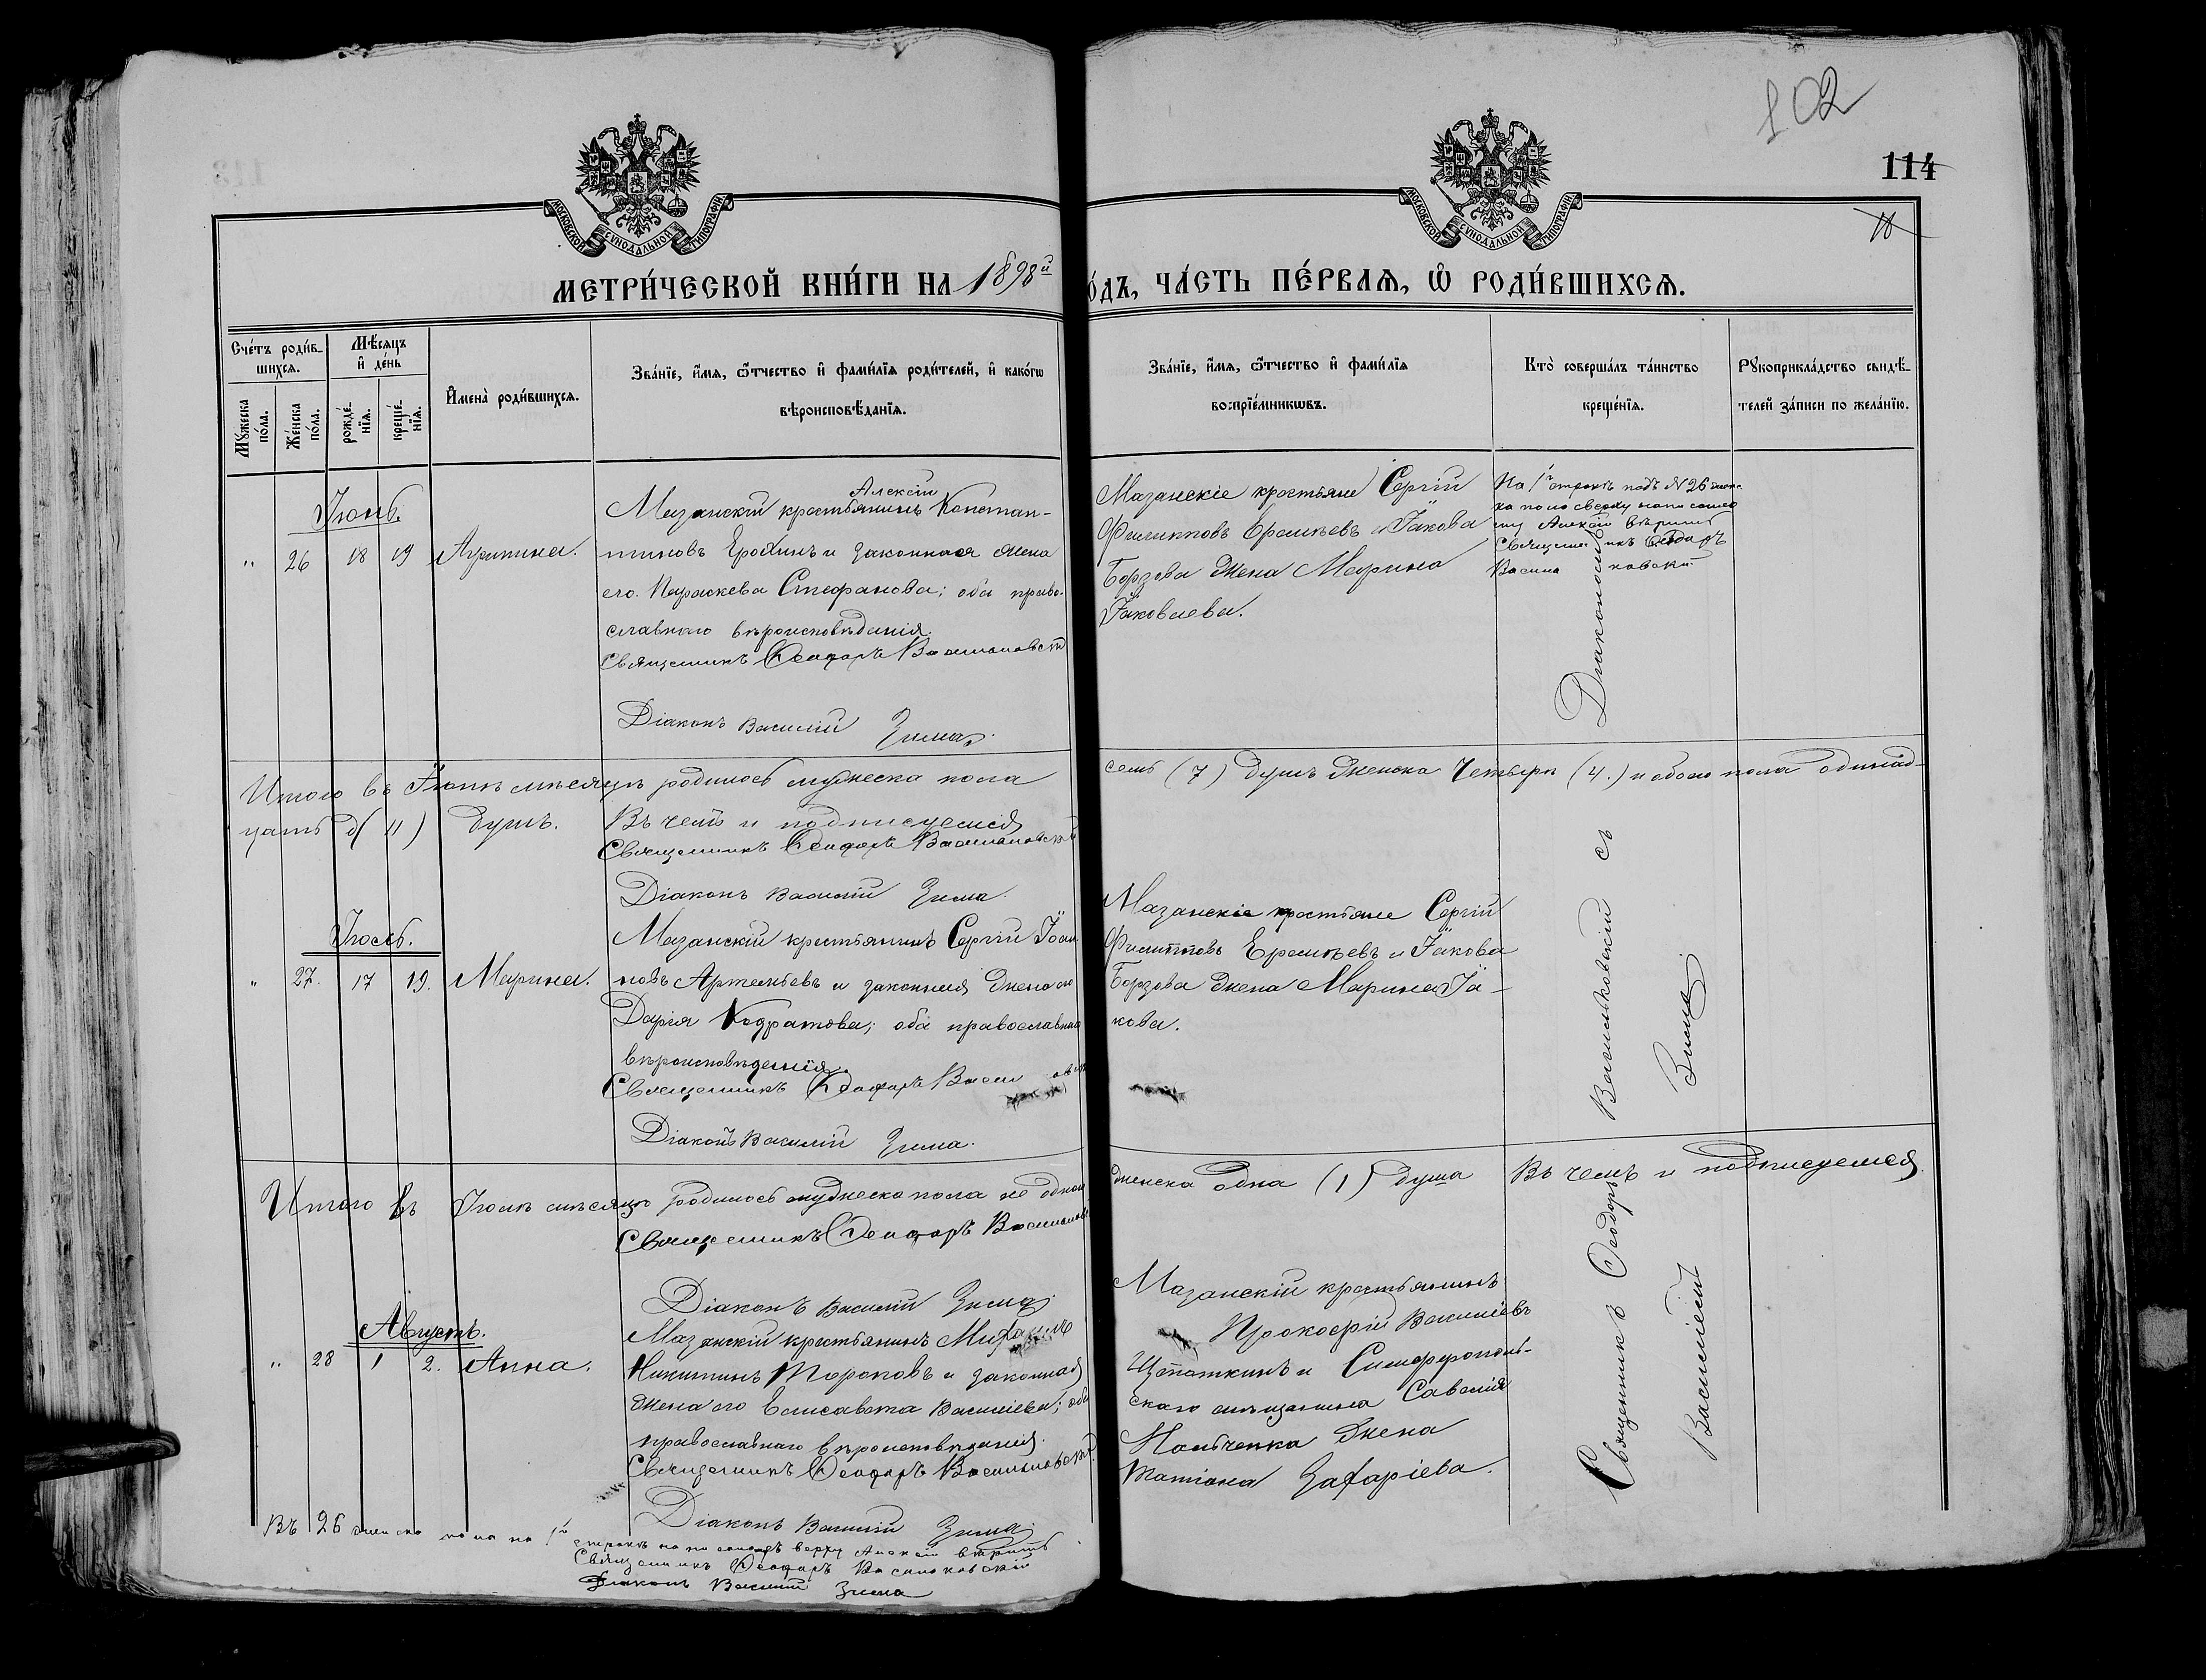 102
114
МОСКОВСКОЙ СѴНОДАЛЬНОЙ ТИПОГРАФІИ
МОСКОВСКОЙ СѴНОДАЛЬНОЙ ТИПОГРАФІИ
МЕТРИ́ЧЕСКОЙ КНИ́ГИ НА 1898й
О́ДЪ, ЧА́СТЬ ПЕ́РВАѦ, Ѡ҆ РОДИ́ВШИХСѦ.
Сче́тъ роди́в-
шихся.
Мѣ́сяцъ
и҆ де́нь
Мꙋ́жеска по́ла.
Же́нска по́ла.
рожде́-
нїя.
креще́-
нїя.
И҆мена̀ роди́вшихся.
Зва́нїе, и҆́мя, ѻ҆́тчество и҆ фами́лїя роди́телей, и҆ како́гѡ
вѣроисповѣ́данїя.
Зва́нїе, и҆́мя, ѻ҆́тчество и҆ фами́лїя
воспрїе́мникѡвъ.
Кто̀ соверша́лъ та́инство
креще́нїя.
Рꙋкоприкла́дство свидѣ́-
телей за́писи по жела́нїю.
Іюнь.
" 26 18 19 Агрипина.
Алексій
Мазанскій крестьянинъ Констан-
тиновъ Ерохинъ и законная жена
его Параскева Стефанова; оба право-
славнаго вѣроисповѣданія.
Священникъ Ѳеодоръ Васильковскій
Діаконъ Василій Зима.
Мазанскіе крестьяне Сергій
Филипповъ Еремѣевъ и Іакова
Борзова жена Марина
Іаковлева.
На 1й строкѣ подъ № 26 женс-
ка пола сверху написанно
му Алексій вѣрить
Священникъ Ѳеодоръ
Васильковскій
Итого въ Іюнѣ мѣсяцѣ родилось мужеска пола
семь (7) душъ женска четыре (4.) и обоего пола одинад-
цать (11) душъ. Въ чемъ и подписуемся
Священникъ Ѳеодоръ Васильковскій
Діаконъ Василій Зима.
Іюль.
" 27. 17 19. Марина.
Мазанскій крестьянинъ Сергій Іоан
новъ Артемьевъ и законная жена его
Дарія Кодратова; оба православнаго
вѣроисповѣданія.
Священникъ Ѳеодоръ
Діаконъ Василій Зима.
Мазанскіе крестьяне Сергій
Филипповъ Еремѣевъ и Іакова
Борзова жена Марина Іа-
кова.
Итого въ Іюлѣ мѣсяцѣ родилось мужеска пола не одной
женска одна (1) душа Въ чемъ и подписуемся.
Священникъ Ѳеодоръ Васильковс
Діаконъ Василій Зима.
Августъ.
" 28 1 2. Анна.
Мазанскій крестьянинъ Михаилъ
Никитинъ Тороповъ и законная
жена его Елисавета Василіева; оба
православнаго вѣроисповѣданія.
Священникъ Ѳеодоръ Васильковскій.
Діаконъ Василій Зима.
Мазанскій крестьянинъ
Прокофій Василіевъ
Щепаткинъ и Симферополь-
скаго мѣщанина Савелія
жена
Татіана Захаріева.
Священникъ Ѳеодоръ Васильковскій съ Діакономъ
Василіемъ Зимой.
Въ 26 женска пола на 1й строкѣ верху Алексій вѣрить
Священникъ Ѳеодоръ Васильковскій
Діаконъ Василій Зима